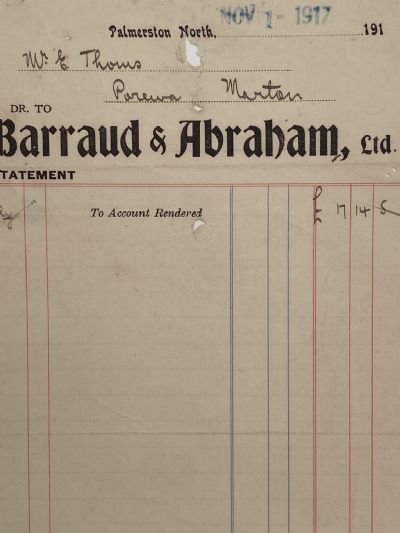 Palmerston North, NOV 1 - 1917 191
Mr E Thoms
Porewa Marton
DR. TO
Barraud & Abraham, Ltd.
STATEMENT
To Account Rendered £ 7 14 5